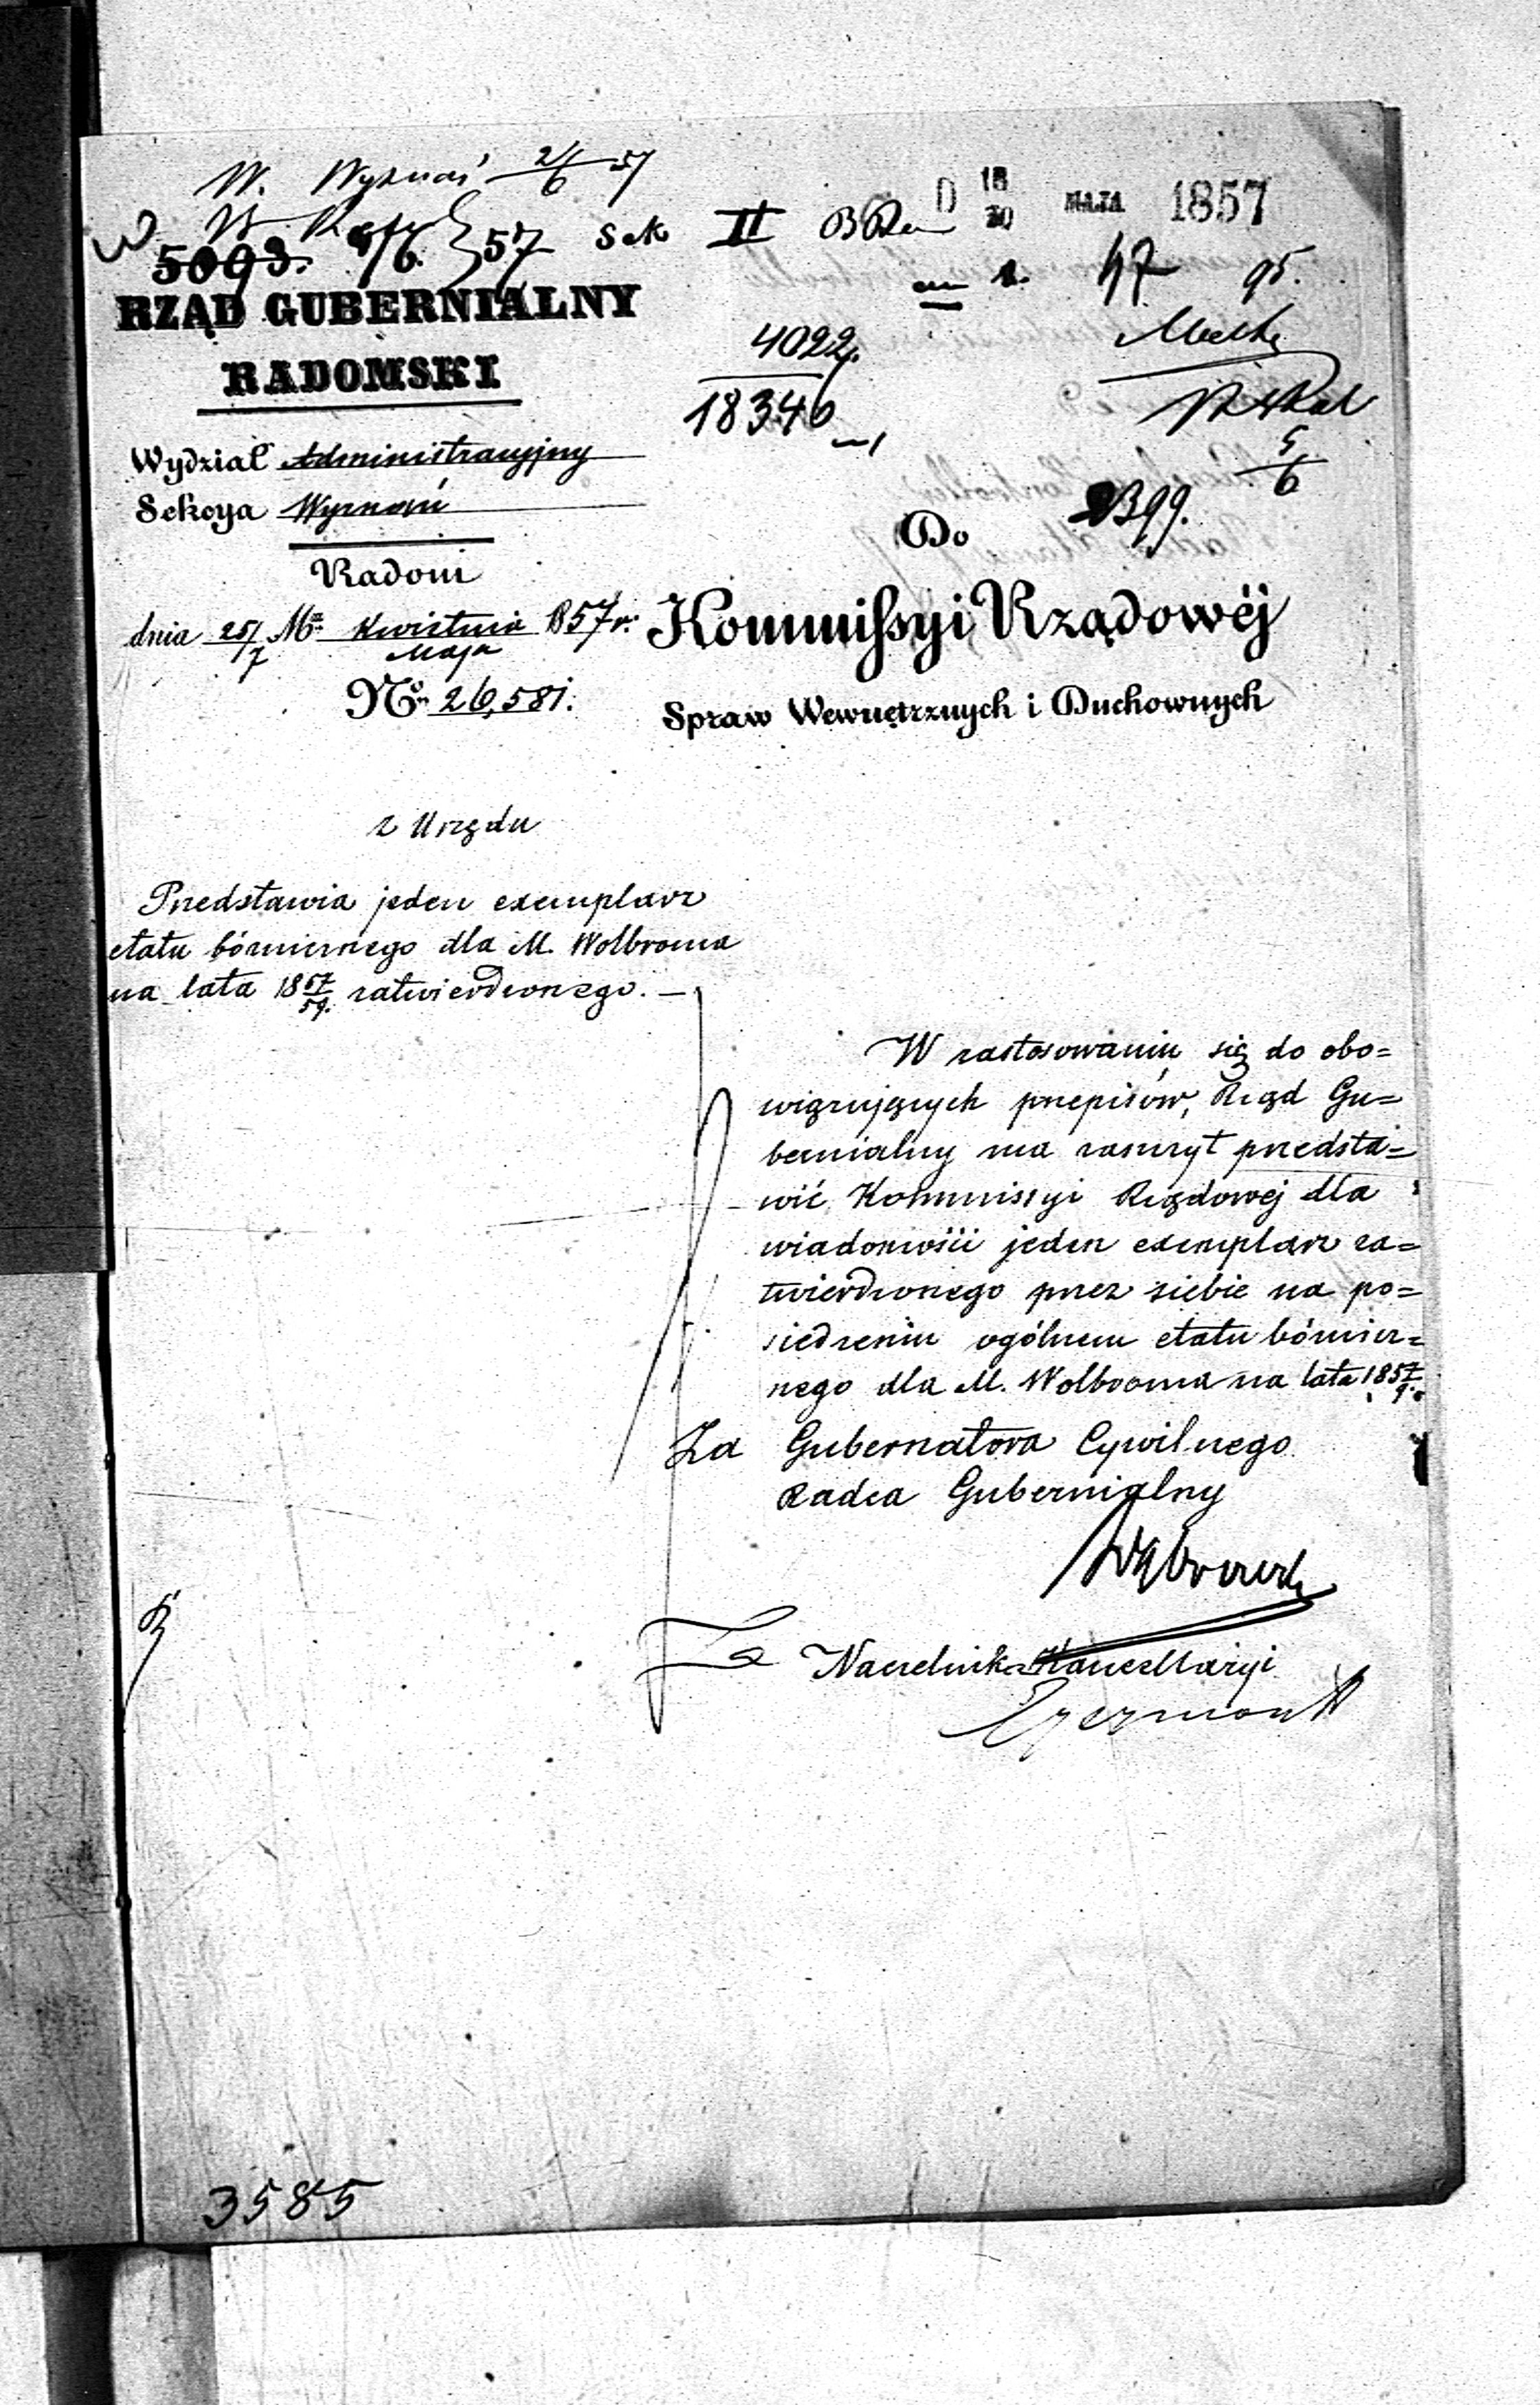 W. Wyznań 2/6 57
5093. 4/6. 57 Sek II
D 18/30 MAJA 1857
1. 47 95.
RZĄD GUBERNIALNY
RADOMSKI
4022.
18346
5/6
Wydział Administracyjny
Sekcya Wyznań
2399.
Do
Radom
dnia 25/7 Mca Kwietnia/Maja 1857 r.
Kommissyi Rządowéj
No 26,581.
Spraw Wewnętrznych i Duchownych
z Urzędu
Przedstawia jeden exemplarz
etatu bóżnicznego dla M. Wolbroma
na lata 1857/59. zatwierdzonego. —
W zastosowaniu się do obo=
wiązujących przepisów, Rząd Gu=
bernialny ma zaszczyt przedsta=
wić Kommissyi Rządowej dla
wiadomości jeden exemplarz za=
twierdzonego przez siebie na po=
siedzeniu ogólnem etatu bóżnicz=
nego dla M. Wolbroma na lata 1857/9.
Za Gubernatora Cywilnego
Radca Gubernialny
Za Naczelnika Kancellaryi
3585